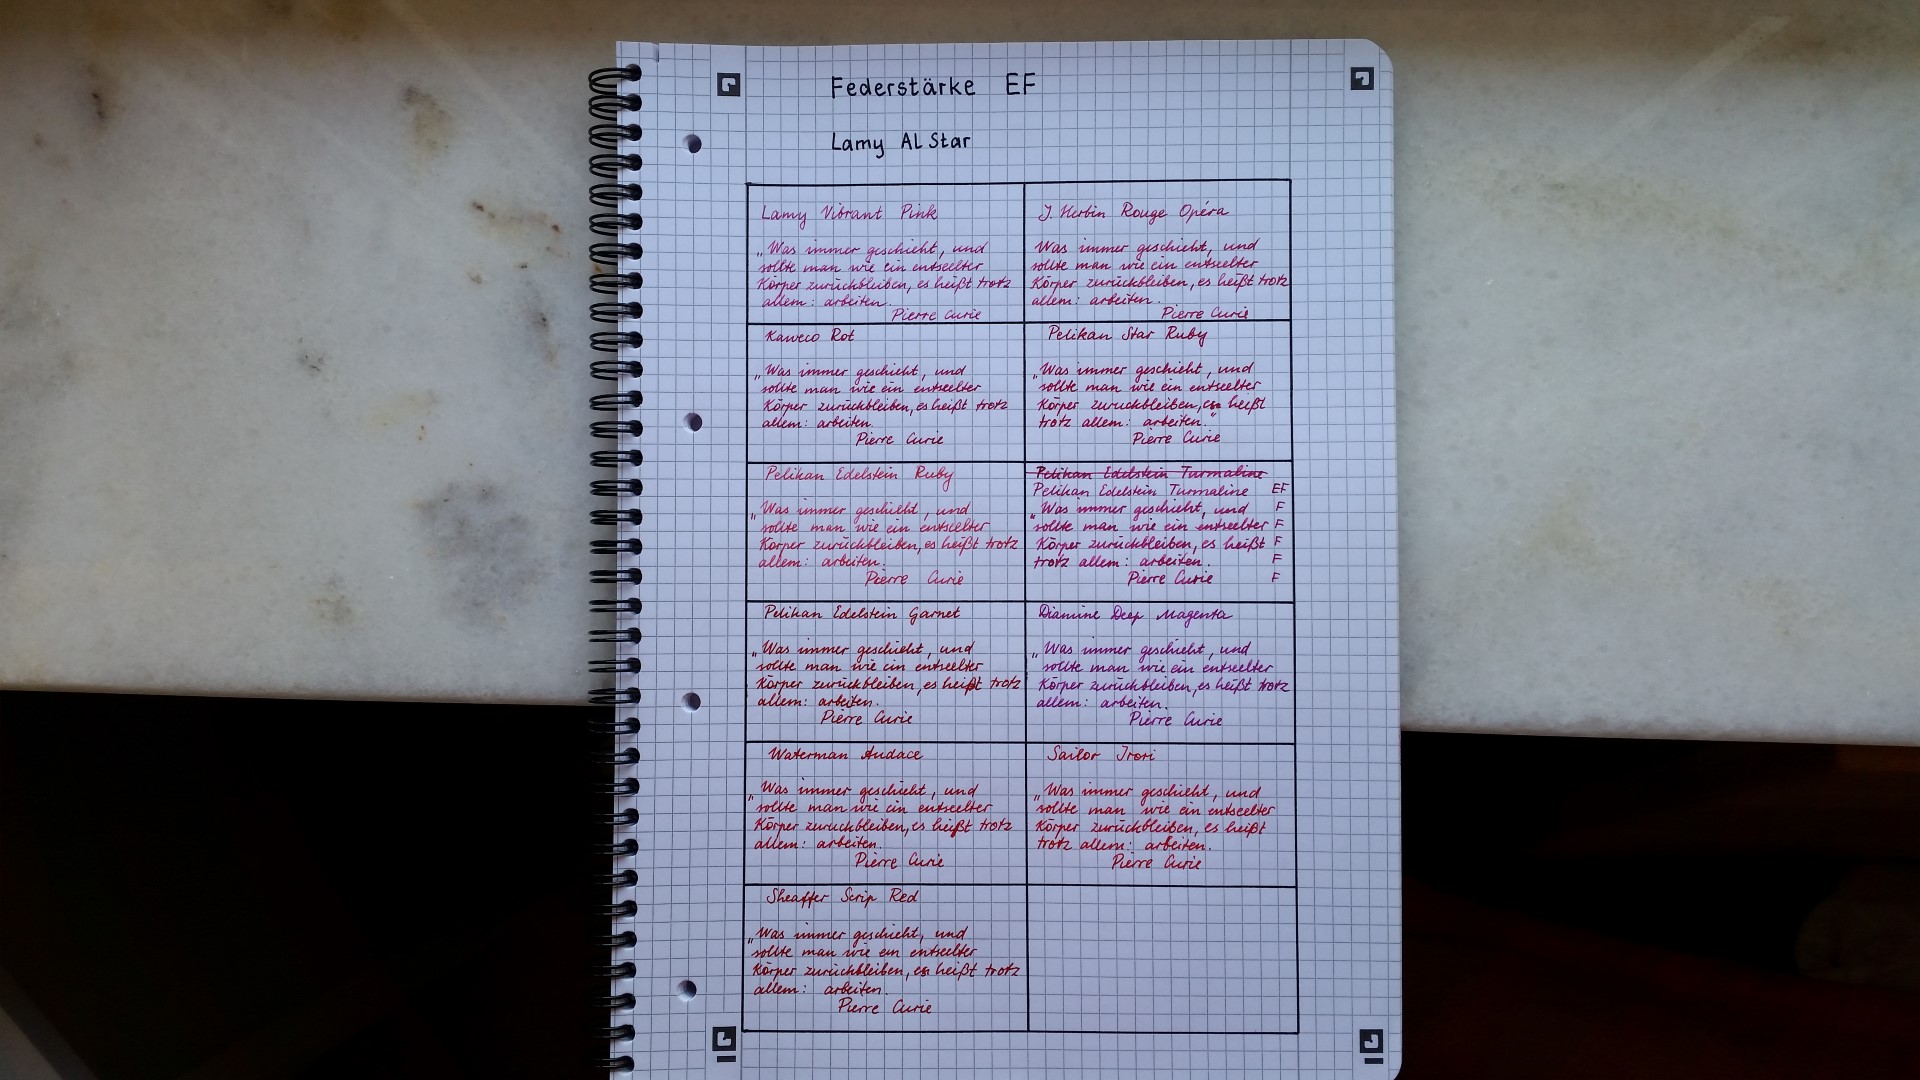 Federstärke EF
Lamy AL Star
Lamy Vibrant Pink
„Was immer geschieht, und
sollte man wie ein entseelter
Körper zurückbleiben, es heißt trotz
allem: arbeiten.
Pierre Curie
J. Herbin Rouge Opéra
Was immer geschieht, und
sollte man wie ein entseelter
Körper zurückbleiben, es heißt trotz
allem: arbeiten.
Pierre Curie
Kaweco Rot
„Was immer geschieht, und
sollte man wie ein entseelter
Körper zurückbleiben, es heißt trotz
allem: arbeiten.
Pierre Curie
Pelikan Star Ruby
„Was immer geschieht, und
sollte man wie ein entseelter
Körper zurückbleiben, es heißt
trotz allem: arbeiten."
Pierre Curie
Pelikan Edelstein Ruby
„Was immer geschieht, und
sollte man wie ein entseelter
Körper zurückbleiben, es heißt trotz
allem: arbeiten.
Pierre Curie
Pelikan Edelstein Turmaline
Pelikan Edelstein Turmaline EF
„Was immer geschieht, und F
sollte man wie ein entseelter F
Körper zurückbleiben, es heißt F
trotz allem: arbeiten. F
Pierre Curie F
Pelikan Edelstein Garnet
„Was immer geschieht, und
sollte man wie ein entseelter
Körper zurückbleiben, es heißt trotz
allem: arbeiten.
Pierre Curie
Diamine Deep Magenta
„Was immer geschieht, und
sollte man wie ein entseelter
Körper zurückbleiben, es heißt trotz
allem: arbeiten.
Pierre Curie
Waterman Audace
„Was immer geschieht, und
sollte man wie ein entseelter
Körper zurückbleiben, es heißt trotz
allem: arbeiten.
Pierre Curie
Sailor Irori
„Was immer geschieht, und
sollte man wie ein entseelter
Körper zurückbleiben, es heißt
trotz allem: arbeiten.
Pierre Curie
Sheaffer Scrip Red
„Was immer geschieht, und
sollte man wie ein entseelter
Körper zurückbleiben, es heißt trotz
allem: arbeiten.
Pierre Curie